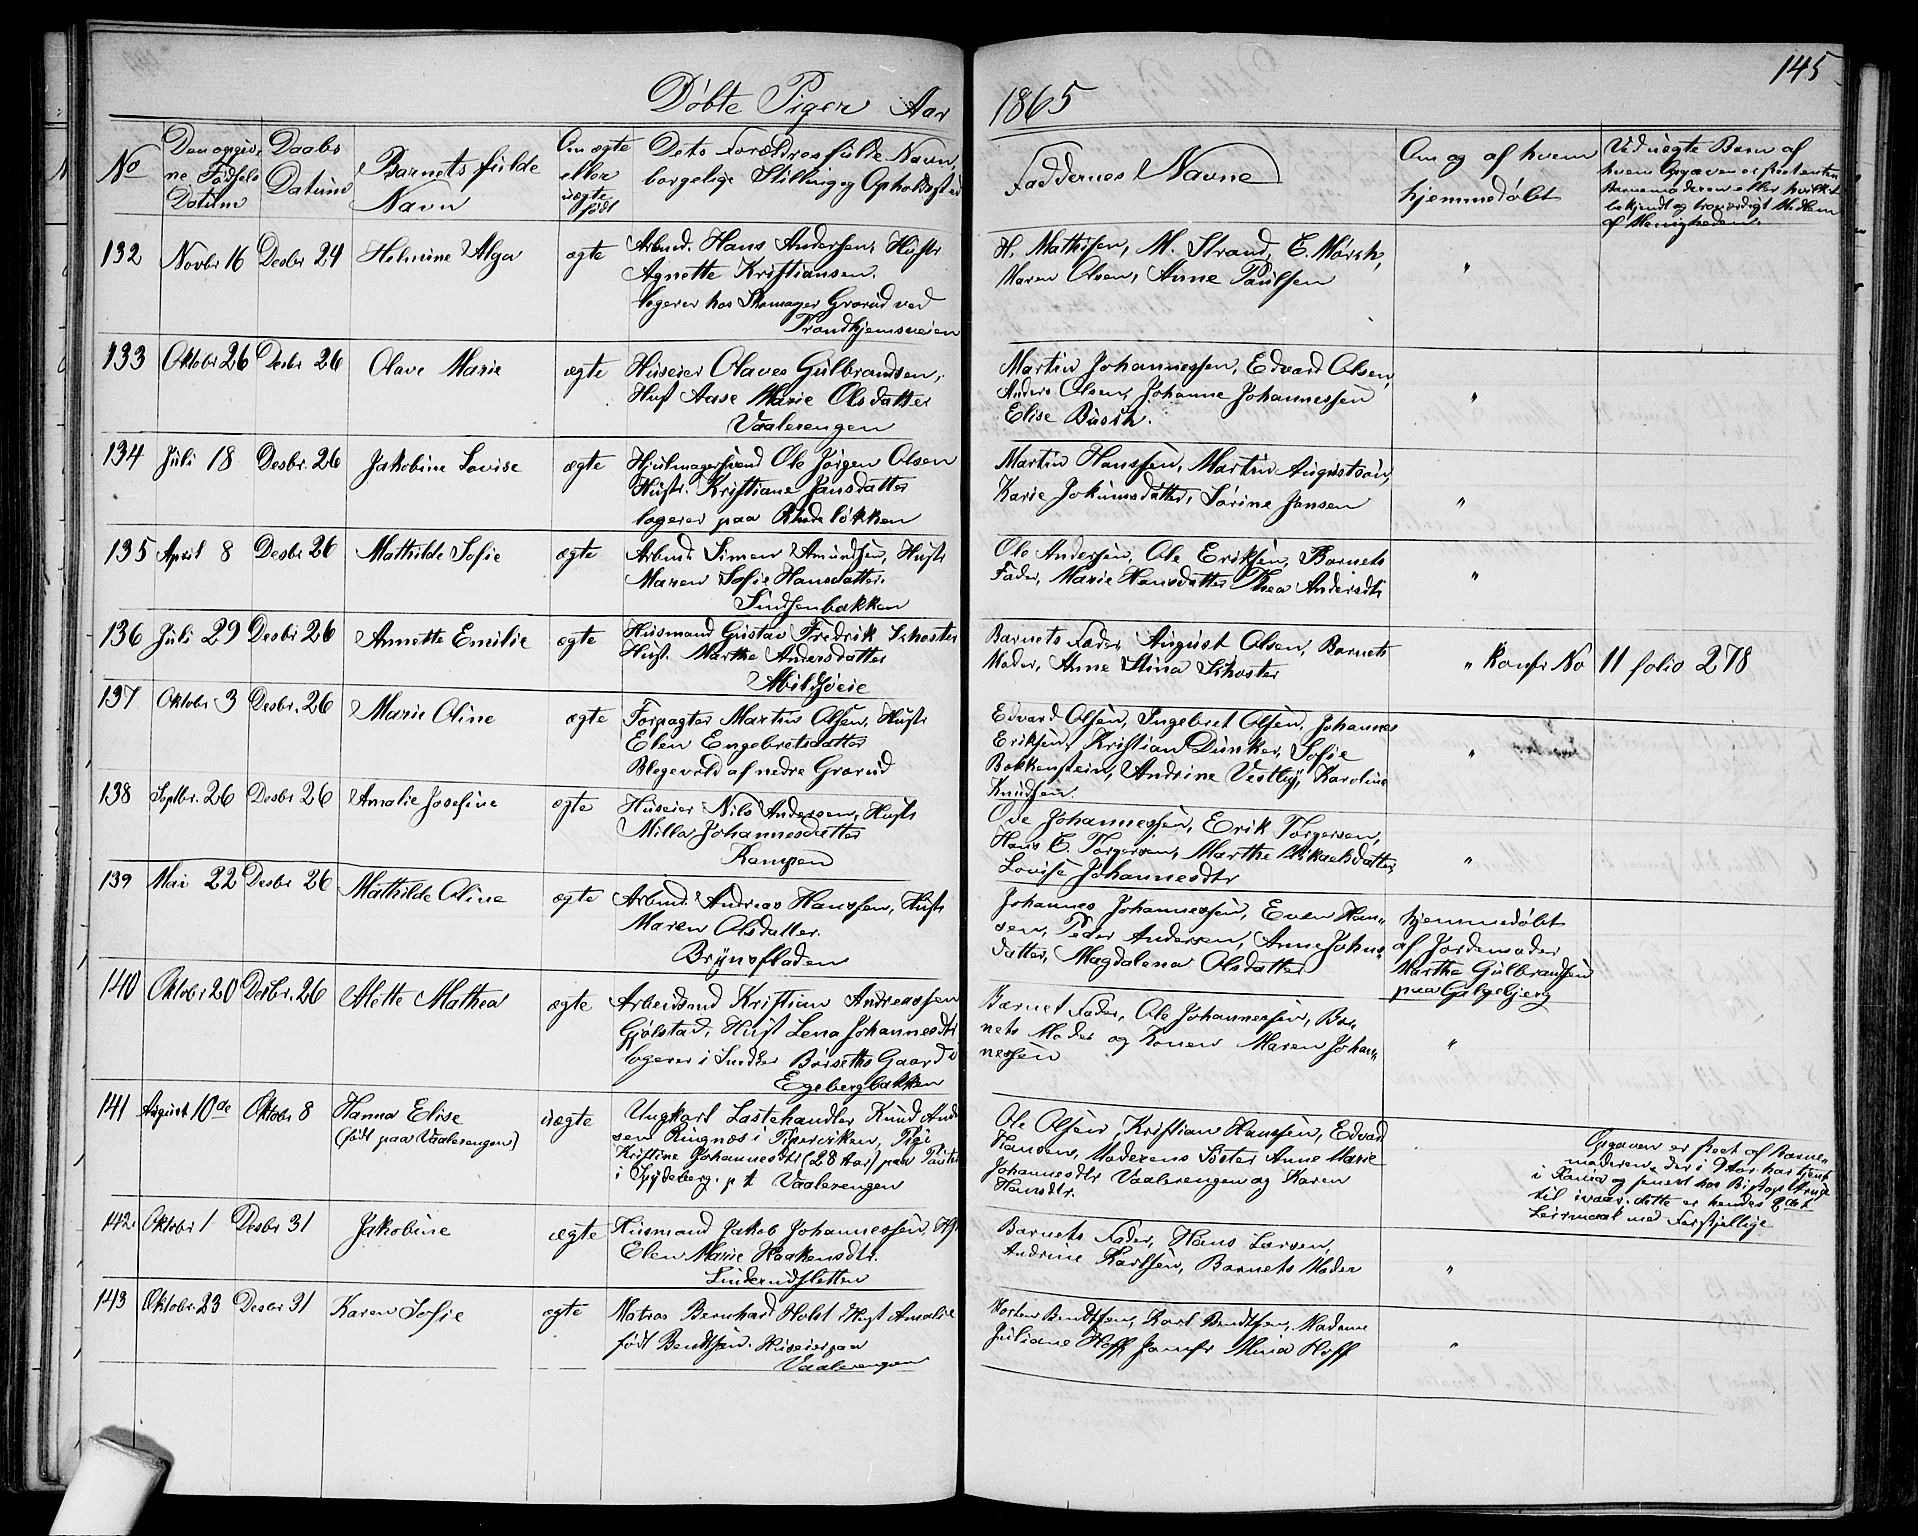 145
Döbte Piger Aar 1865
No
Den opgiv-
ne Födsels
Datum
Daabs
Datum
Barnets fulde
Navn
Om ægte
eller
uægte
født
Dets Forældres fulde Navn,
borgelige Stilling og Opholdsst
Faddernes Navne
Om og af hvem
hjemmedøbt
Ved uægte Børn af
hvem Opgaven er
Barnemoderen eller hvilket
bekjendt og troværdigt Medlem
af Menigheden
132 Novbr 16 Desbr 24 Helmine Alga ægte
Arbmd. Hans Andersen, Hustr
Agnette Kristiansen.
logerer hos Skomager Grorud ved
Trondhjemsveien
H. Mathisen, M. Strand, E. Mörch,
Maren Olsen, Anne Paulsen
"
133 Oktobr 26 Desbr 26 Olave Marie ægte
Huseier Olaves Gulbrandsen,
Hust Aase Marie Olsdatter
Vaalerengen
Martin Johannessen, Edvard Olsen,
Anders Olsen, Johanne Johannessen
Elise Busch.
"
134 Juli 18 Desbr. 26 Jakobine Lovise ægte
Hjulmagersvend Ole Jörgen Olsen
Hustr. Kristiane Jansdatter
logerer paa Rhodelökken
Martin Hanssen, Martin Augustson,
Karie Jokumsdatter, Sörine Jansen
"
135 April 8 Desbr 26 Mathilde Sofie ægte
Arbmd. Simen Amundsen, Hustr
Maren Sofie Hansdatter.
Simsenbakken
Ole Andersen, Ole Eriksen, Barnets
Fader, Marie Hansdatter Thea Andersdtr
"
136 Juli 29 Desbr 26 Annette Emilie ægte
Husmand Gustav Fredrik Schoster
Hust. Marthe Andersdatter
Abildsöeie
Barnets Fader, August Olsen, Barnets
Moder, Anne Stina Schoster
" Konfr No 11 folio 278
137 Oktobr 3 Desbr. 26 Marie Oline ægte
Forpagter Martin Olsen, Hustr
Elen Engebretsdatter
Blegevold af nedre Grorud
Edvard Olsen, Ingebret Olsen, Johannes
Eriksen, Kristian Dunker, Sofie
Bokkenstein, Andrine Vestby, Karoline
Knudsen.
"
138 Septbr. 26 Desbr 26 Amalie Josefine ægte
Huseier Nils Andersen, Hustr
Milla Johannesdatter
Kampen
Ove Johannessen, Erik Torgersen,
Hans E. Torgersen, Marthe Mikaelsdatter,
Lovise Johannesdtr
"
139 Mai 22 Desbr 26 Mathilde Oline ægte
Arbmd. Andreas Hanssen, Hustr
Maren Olsdatter.
Brynsfladen
Johannes Johannessen, Even Han-
sen, Peder Andersen, Anne Johns-
datter, Magdalena Olsdatter
hjemmedöbt
af Jordemoder
Marthe Gulbrandsen
paa Galgebjerg
140 Oktobr 20 Desbr. 26 Alette Mathea ægte
Arbeidsmd Kristian Andreassen
Gjölstad, Hust Lena Johannesdtr
logerer i Snedker Borseths Gaard i
Egebergbakken
Barnet Fader, Ole Johannessen, Bar-
nets Moder og Konen Maren Johan-
nessen
"
141 August 10de Oktobr 8 Hanna Elise
(født paa Vaalerengen)
uægte
Ungkarl Lastehandler Knud Ander
sen Ringnes i Pipervikken, Pige
Kristine Johannesdtr (28 Aar) paa
i Spydeberg. p t. Vaalerengen
Ole Olsen, Kristian Hanssen, Edvard
Hansen, Moderens Söster Anne Marie
Johannesdtr Vaalerengen og Karen
Hansdtr.
Opgaven er skeet af Barne-
moderen, der i 9 Aar har tjent
i Xania og senest hos Bistop Arup
til ivaar. dette er hendes 2det
Leirmaal med Forskjellige
142 Oktobr 1 Desbr 31 Jakobine ægte
Husmand Jakob Johannessen, Hst
Elen Marie Haakensdtr.
Linderudsletten
Barnets Fader, Hans Larsen,
Andrine Karlsen, Barnets Moder
"
143 Oktobr. 23 Desbr 31 Karen Sofie ægte
Matros Bernhard Holst Hust Amalie
født Bendtsen. Huseier paa
Vaalerengen
Morten Bendtsen, Karl Bendtsen, Madame
Juliane Hoff Jomfr Mina Hoff
"